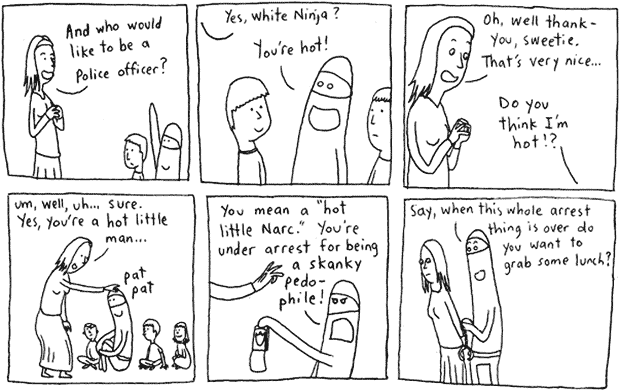 And who would
like to be a
Police officer?
Yes, white Ninja?
You're hot!
Oh, well thank-
you, sweetie.
That's very nice...
Do you
think I'm
hot!?
um, well, uh... sure.
Yes, you're a hot little
man...
pat
pat
You mean a "hot
little Narc." You're
under arrest for being
a skanky
pedo-
phile!
Say, when this whole arrest
thing is over do
you want to
grab some lunch?